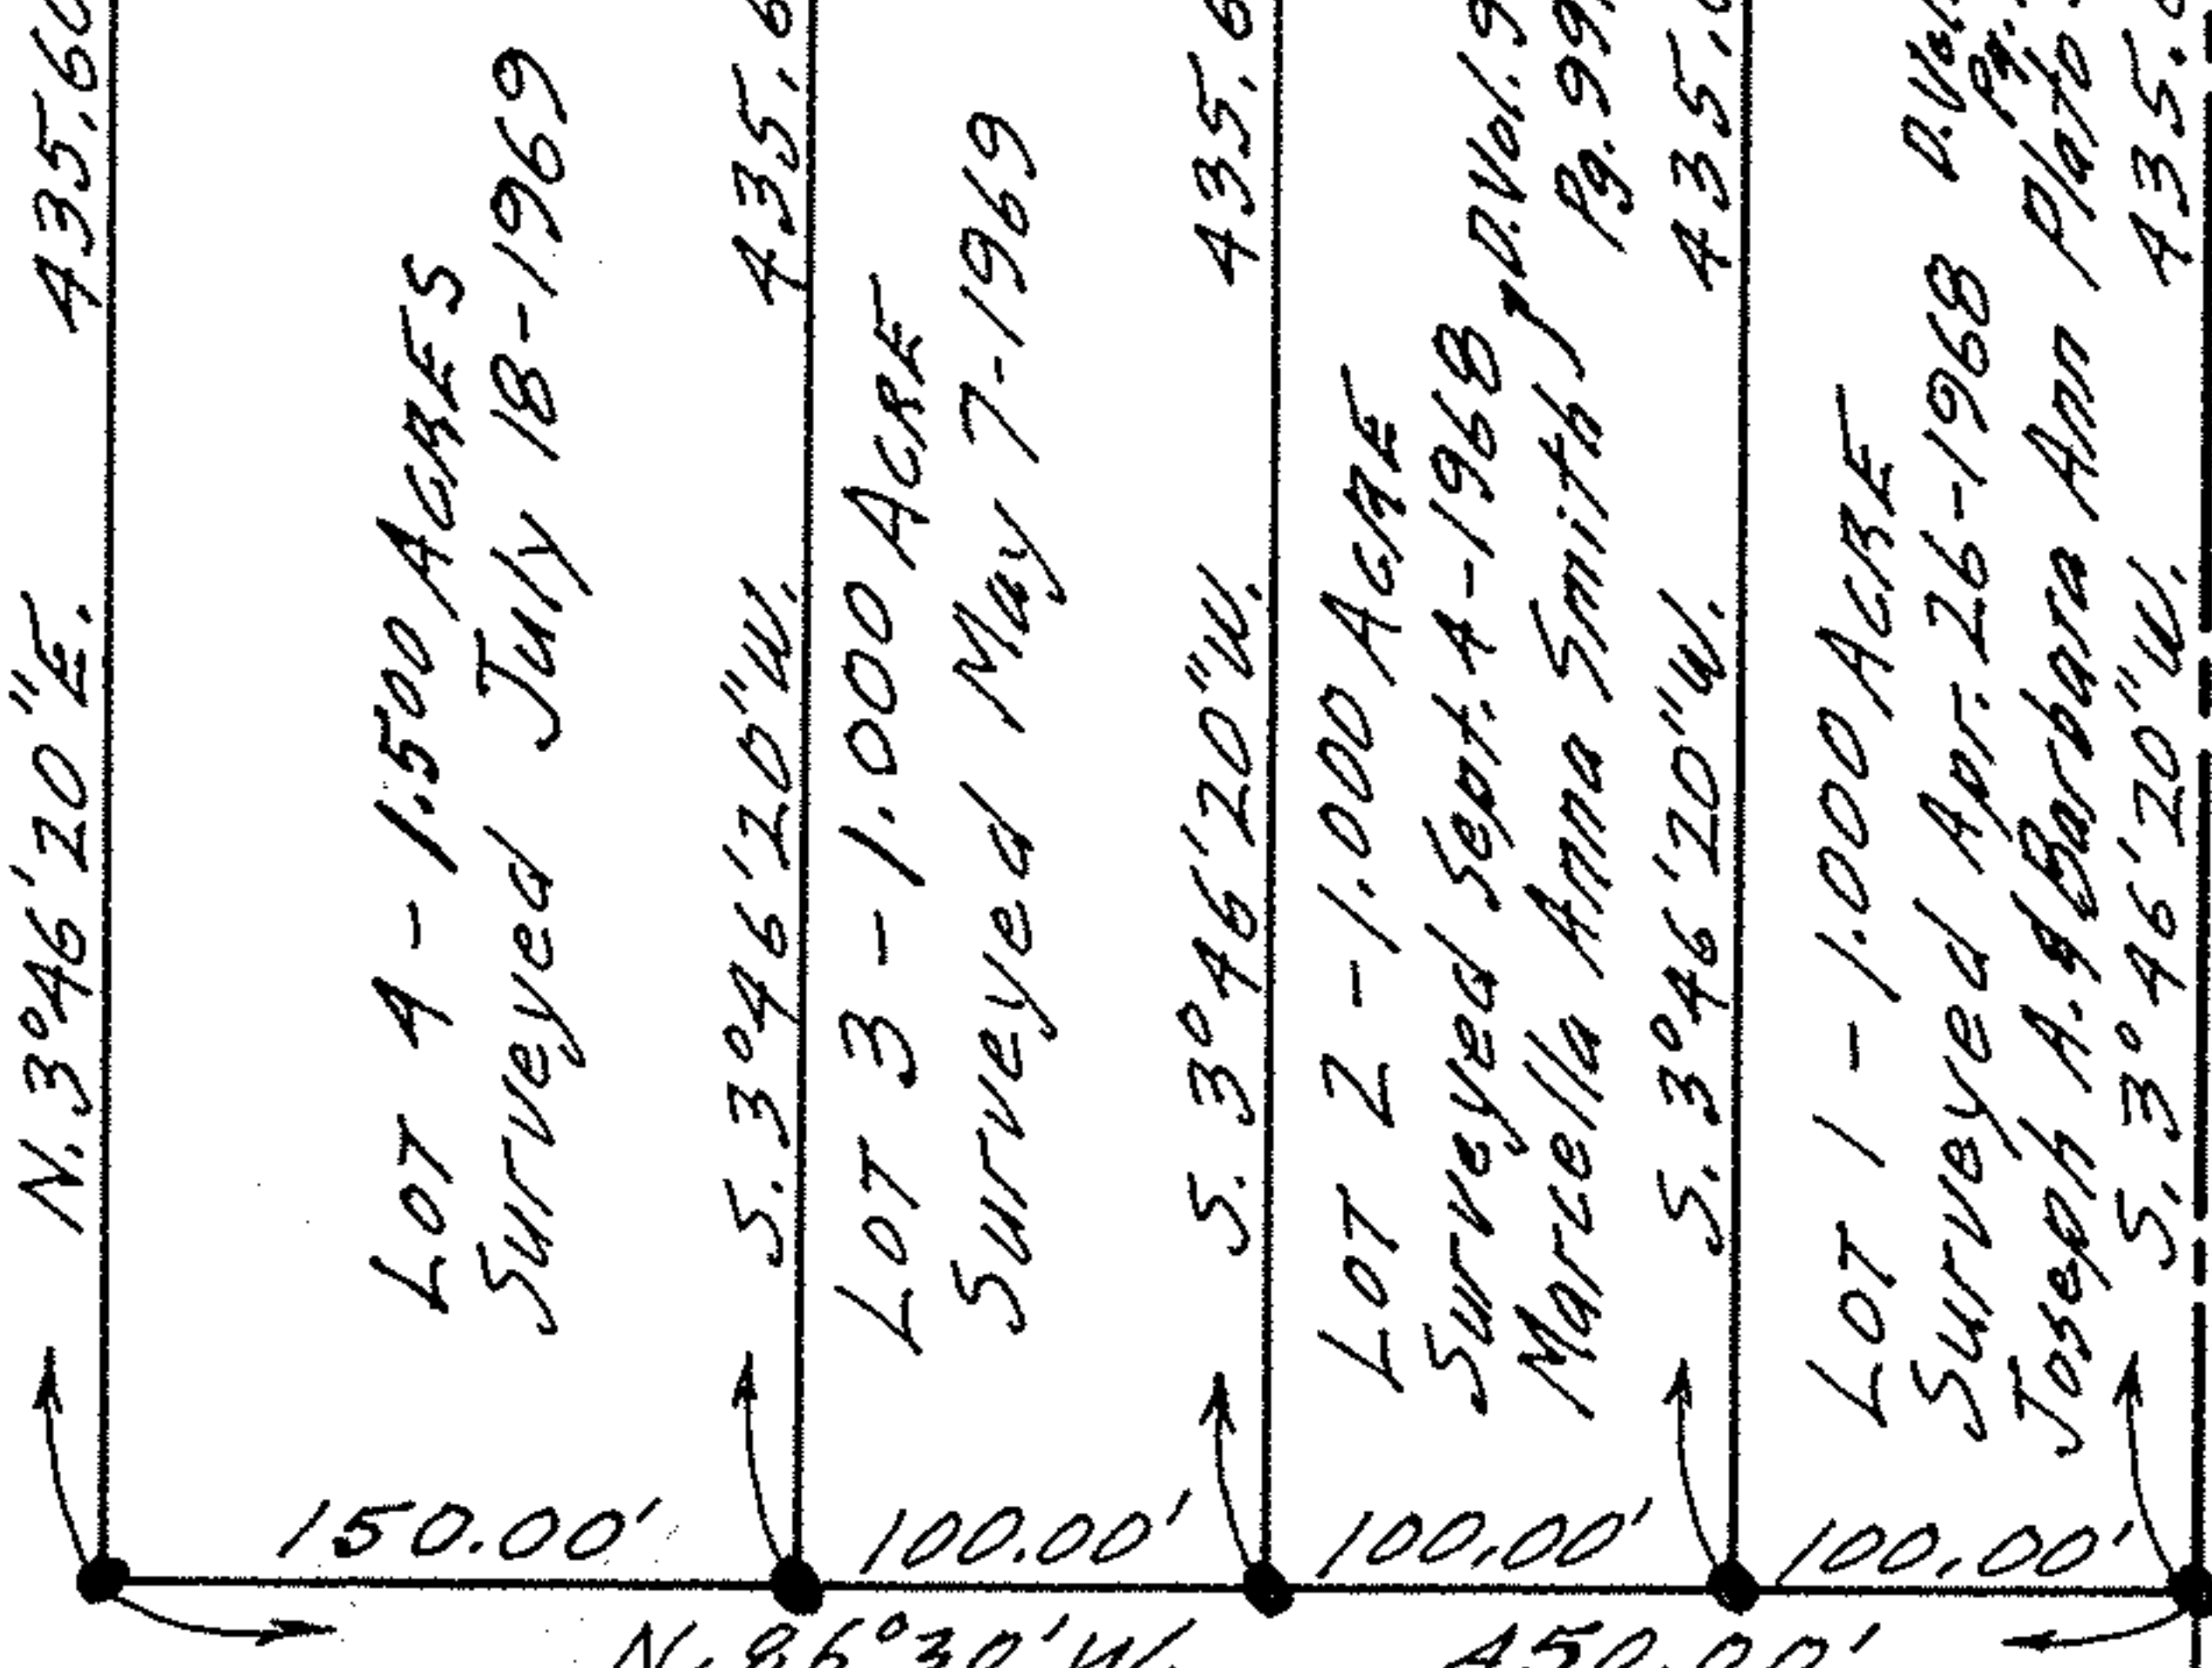 N. 3°46'20"E. 435.60
LOT 4 - 1.500 ACRES
Surveyed July 18-1969
S. 3°46'20"W. 435.6
LOT 3 - 1.000 ACRE
Surveyed May 7-1969
S. 3°46'20"W. 435.6
LOT 2 - 1.000 ACRE
Surveyed Sept. 4-1968 D.Vol.9
Marcella Anna Smith Pg. 99
S. 3°46'20"W. 435.6
LOT 1 - 1.000 ACRE
Surveyed Apr. 26-1968 D.Vol.
Joseph A. & Barbara Ann Plato Pg.
S. 3°46'20"W. 435.6
150.00' 100.00' 100.00' 100.00'
N. 86°30'W. 450.00'